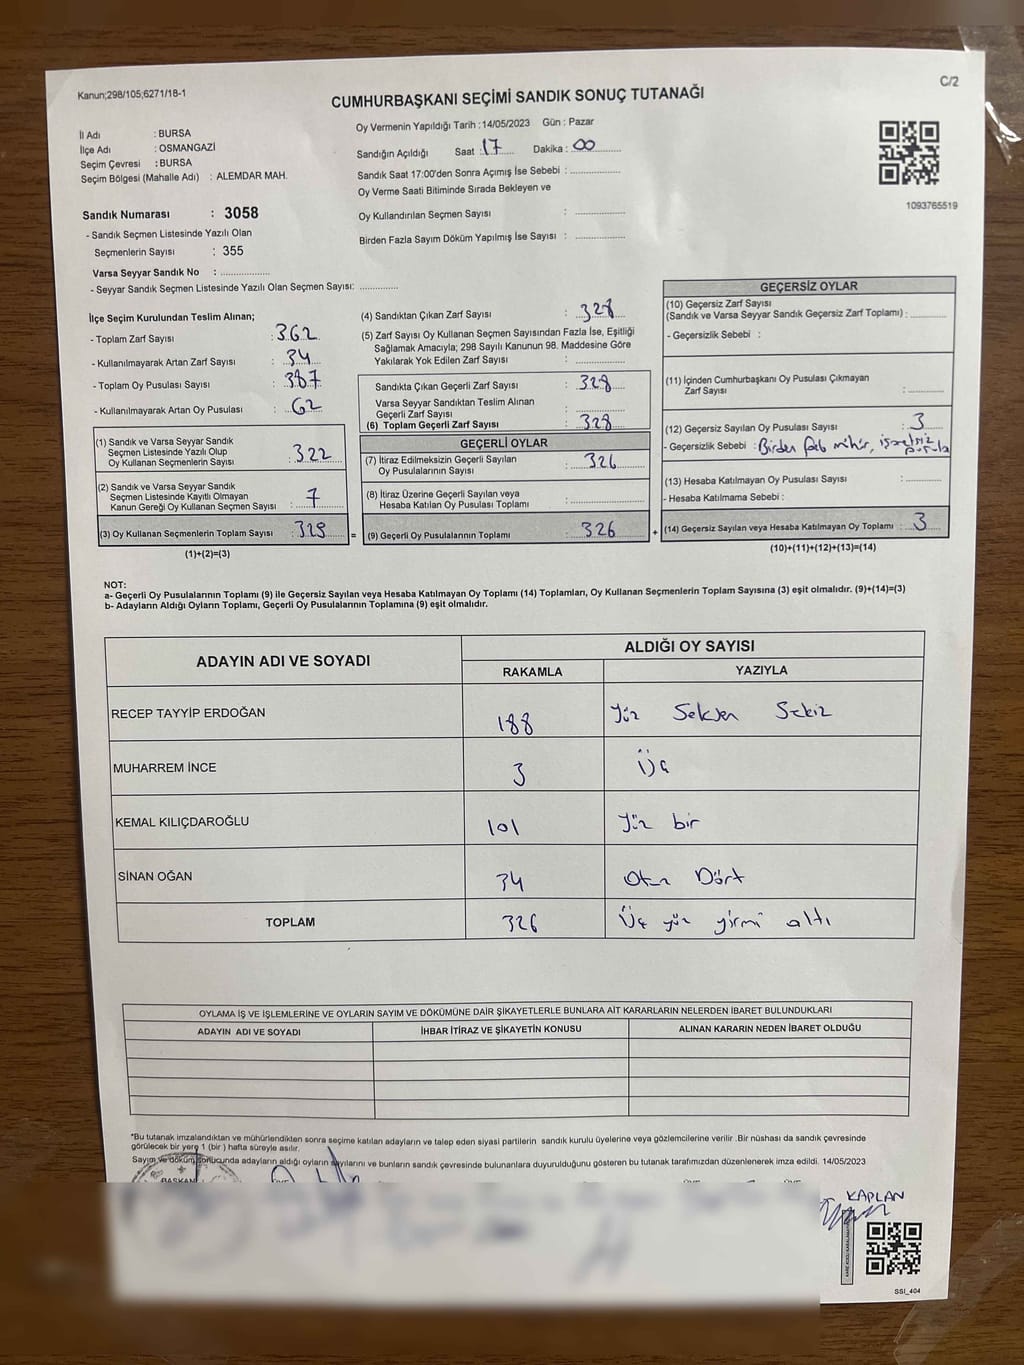 Kanun;298/105;6271/18-1
C/2
CUMHURBAŞKANI SEÇİMİ SANDIK SONUÇ TUTANAĞI
İl Adı : BURSA
İlçe Adı : OSMANGAZİ
Seçim Çevresi : BURSA
Seçim Bölgesi (Mahalle Adı) : ALEMDAR MAH.
Sandık Numarası : 3058
- Sandık Seçmen Listesinde Yazılı Olan
Seçmenlerin Sayısı : 355
Varsa Seyyar Sandık No : ....................
- Seyyar Sandık Seçmen Listesinde Yazılı Olan Seçmen Sayısı: ............
Oy Vermenin Yapıldığı Tarih : 14/05/2023 Gün : Pazar
Sandığın Açıldığı Saat : 17 Dakika : 00
Sandık Saat 17:00'den Sonra Açımış İse Sebebi : ................
Oy Verme Saati Bitiminde Sırada Bekleyen ve
Oy Kullandırılan Seçmen Sayısı : ................
Birden Fazla Sayım Döküm Yapılmış İse Sayısı : ................
1093765519
İlçe Seçim Kurulundan Teslim Alınan;
- Toplam Zarf Sayısı : 362
- Kullanılmayarak Artan Zarf Sayısı : 34
- Toplam Oy Pusulası Sayısı : 387
- Kullanılmayarak Artan Oy Pusulası : 62
(1) Sandık ve Varsa Seyyar Sandık
Seçmen Listesinde Yazılı Olup
Oy Kullanan Seçmenlerin Sayısı : 322
(2) Sandık ve Varsa Seyyar Sandık
Seçmen Listesinde Kayıtlı Olmayan
Kanun Gereği Oy Kullanan Seçmen Sayısı : 7
(3) Oy Kullanan Seçmenlerin Toplam Sayısı : 329
(1)+(2)=(3)
(4) Sandıktan Çıkan Zarf Sayısı : 328
(5) Zarf Sayısı Oy Kullanan Seçmen Sayısından Fazla İse, Eşitliği
Sağlamak Amacıyla; 298 Sayılı Kanunun 98. Maddesine Göre
Yakılarak Yok Edilen Zarf Sayısı : ................
Sandıkta Çıkan Geçerli Zarf Sayısı : 328
Varsa Seyyar Sandıktan Teslim Alınan
Geçerli Zarf Sayısı : ................
(6) Toplam Geçerli Zarf Sayısı : 328
GEÇERLİ OYLAR
(7) İtiraz Edilmeksizin Geçerli Sayılan
Oy Pusulalarının Sayısı : 326
(8) İtiraz Üzerine Geçerli Sayılan veya
Hesaba Katılan Oy Pusulası Toplamı : ................
= (9) Geçerli Oy Pusulalarının Toplamı : 326 +
GEÇERSİZ OYLAR
(10) Geçersiz Zarf Sayısı
(Sandık ve Varsa Seyyar Sandık Geçersiz Zarf Toplamı) : ............
- Geçersizlik Sebebi :
(11) İçinden Cumhurbaşkanı Oy Pusulası Çıkmayan
Zarf Sayısı : ............
(12) Geçersiz Sayılan Oy Pusulası Sayısı : 3
- Geçersizlik Sebebi : Birden fazla mühür, işaretsiz pusula
(13) Hesaba Katılmayan Oy Pusulası Sayısı : ............
- Hesaba Katılmama Sebebi :
(14) Geçersiz Sayılan veya Hesaba Katılmayan Oy Toplamı : 3
(10)+(11)+(12)+(13)=(14)
NOT:
a- Geçerli Oy Pusulalarının Toplamı (9) ile Geçersiz Sayılan veya Hesaba Katılmayan Oy Toplamı (14) Toplamları, Oy Kullanan Seçmenlerin Toplam Sayısına (3) eşit olmalıdır. (9)+(14)=(3)
b- Adayların Aldığı Oyların Toplamı, Geçerli Oy Pusulalarının Toplamına (9) eşit olmalıdır.
ADAYIN ADI VE SOYADI
ALDIĞI OY SAYISI
RAKAMLA YAZIYLA
RECEP TAYYİP ERDOĞAN 188 Yüz Seksen Sekiz
MUHARREM İNCE 3 Üç
KEMAL KILIÇDAROĞLU 101 Yüz bir
SİNAN OĞAN 34 Otuz Dört
TOPLAM 326 Üç yüz yirmi altı
OYLAMA İŞ VE İŞLEMLERİNE VE OYLARIN SAYIM VE DÖKÜMÜNE DAİR ŞİKAYETLERLE BUNLARA AİT KARARLARIN NELERDEN İBARET BULUNDUKLARI
ADAYIN ADI VE SOYADI İHBAR İTİRAZ VE ŞİKAYETİN KONUSU ALINAN KARARIN NEDEN İBARET OLDUĞU
*Bu tutanak imzalandıktan ve mühürlendikten sonra seçime katılan adayların ve talep eden siyasi partilerin sandık kurulu üyelerine veya gözlemcilerine verilir .Bir nüshası da sandık çevresinde
görülecek bir yere 1 (bir ) hafta süreyle asılır.
Sayım ve döküm sonucunda adayların aldığı oyların sayılarını ve bunların sandık çevresinde bulunanlara duyurulduğunu gösteren bu tutanak tarafımızdan düzenlenerek imza edildi. 14/05/2023
BAŞKAN
KAPLAN
SSI_404